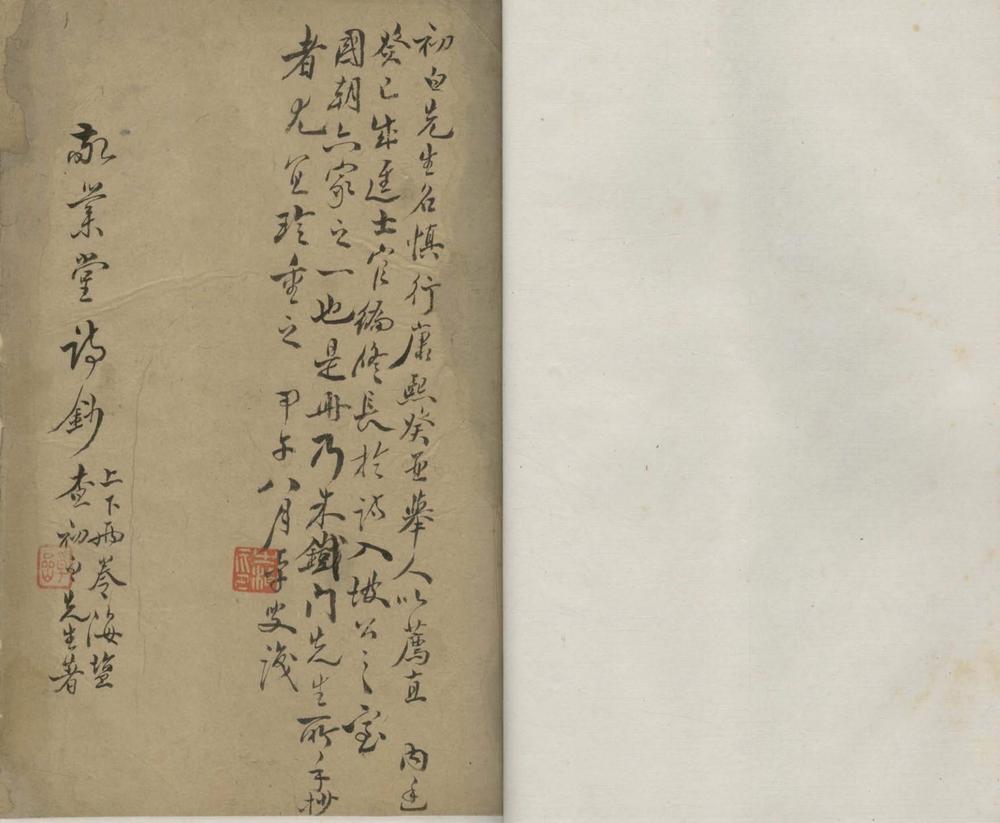 初白先生名慎行康熙癸酉舉人以薦直　內廷
癸已成進士官編修長於詩入坡公之室
國朝六家之一也是冊乃朱鐵門先生所手抄
者尤宜珍重之　甲午八月李叟識
敬業堂詩鈔
上下兩卷海塩
查初白先生著